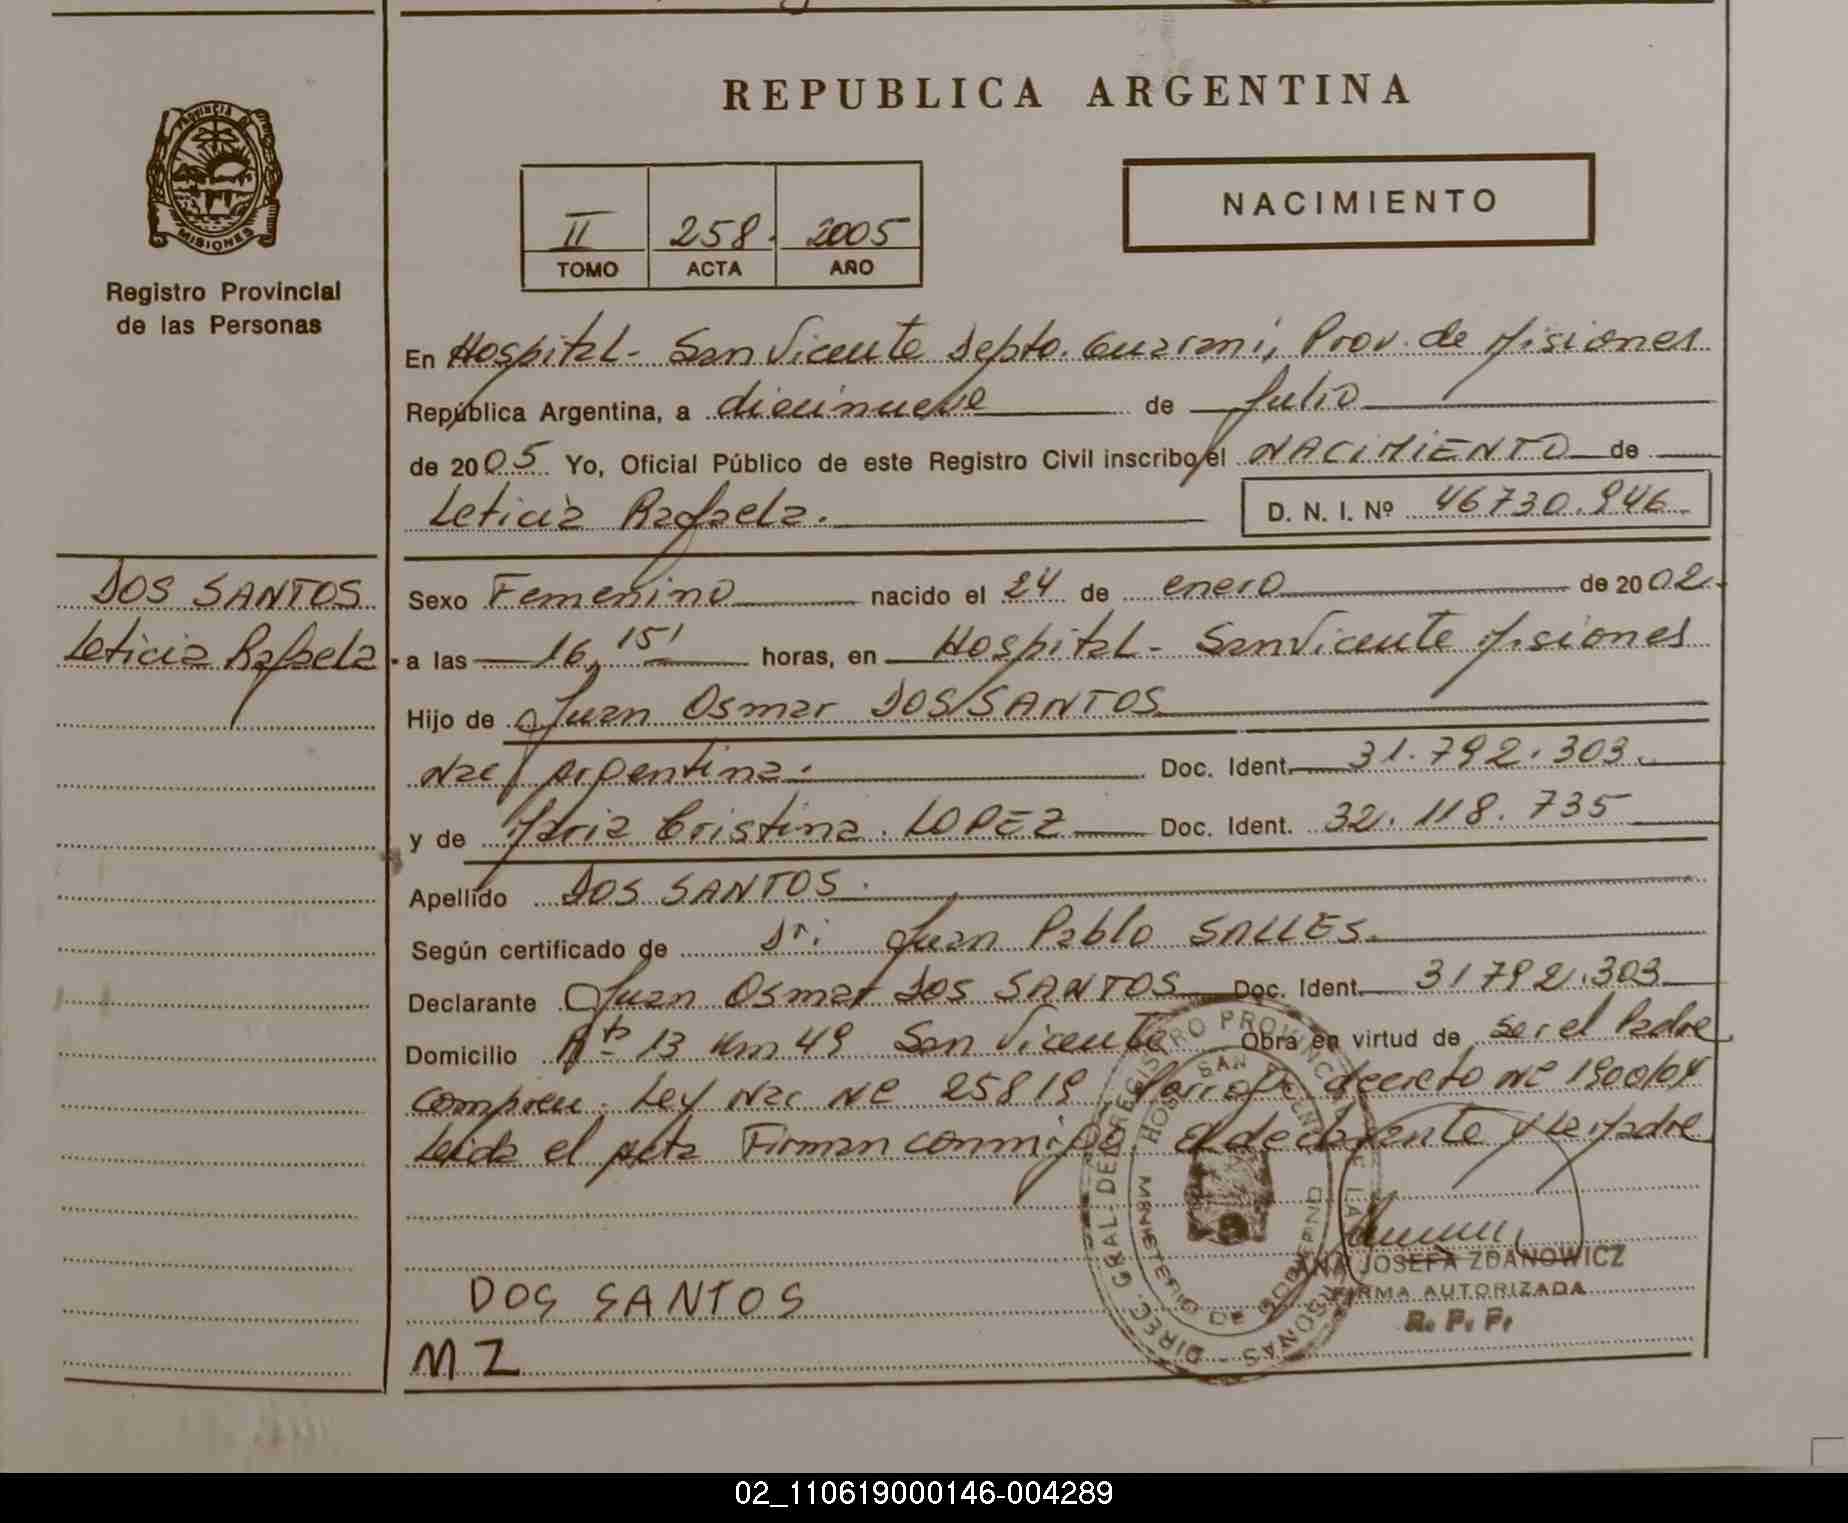 REPUBLICA ARGENTINA
PROVINCIA DE
MISIONES
Registro Provincial
de las Personas
II 258. 2005
TOMO ACTA AÑO
NACIMIENTO
En Hospital- San Vicente Depto. Guarani, Prov. de Misiones
República Argentina, a diecinueve de Julio
de 2005 Yo, Oficial Público de este Registro Civil inscribo el NACIMIENTO de
Leticia Rafaela.
D. N. I. Nº 46730.946.
DOS SANTOS
Leticia Rafaela
Sexo Femenino nacido el 24 de enero de 2002.
a las 16,15' horas, en Hospital- San Vicente Misiones
Hijo de Juan Osmar DOS SANTOS
Nac/ Argentina. Doc. Ident. 31.792.303.
y de Maria Cristina. LOPEZ Doc. Ident. 32.118.735
Apellido DOS SANTOS.
Según certificado de Dr. Juan Pablo SALLES.
Declarante Juan Osmar DOS SANTOS Doc. Ident. 31792.303
Domicilio Rta 13 Km 49 San Vicente Obra en virtud de ser el Padre
Ley Nac Nº 25819 decreto Nº 1900/04
Leida el Acta Firman conmigo el declarante y la Madre
DIREC. GRAL. DE REGISTRO PROVINC DE LAS PERSONAS
HOSP SAN VICENTE
MINISTERIO DE GOBIERNO
ANA JOSEFA ZDANOWICZ
FIRMA AUTORIZADA
R. P. P.
DOS SANTOS
M Z
02_110619000146-004289